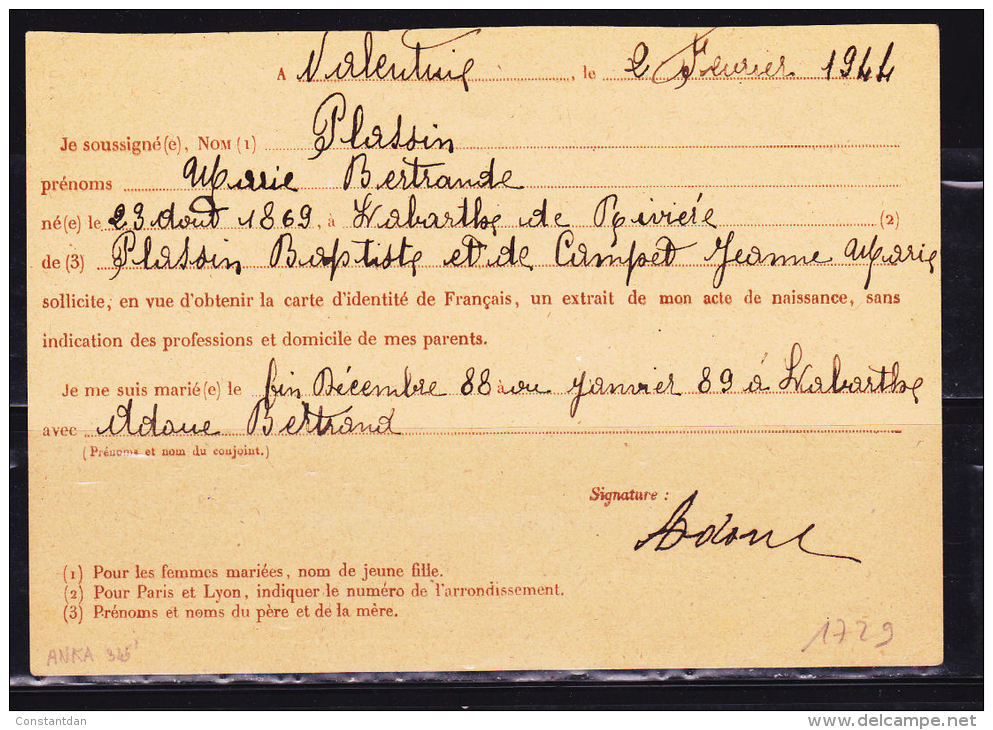 A Valentine, le 2 Février 1944
Je soussigné(e), Nom (1) Plassin
prénoms Marie Bertrande
né(e) le 23 Aout 1869, à Labarthe de Rivière (2)
de (3) Plassin Baptiste et de Campet Jeanne Marie
sollicite, en vue d'obtenir la carte d'identité de Français, un extrait de mon acte de naissance, sans
indication des professions et domicile de mes parents.
Je me suis marié(e) le fin Décembre 88 à ou Janvier 89 à Labarthe
avec Adoue Bertrand
(Prénoms et nom du conjoint.)
Signature :
Adoue
(1) Pour les femmes mariées, nom de jeune fille.
(2) Pour Paris et Lyon, indiquer le numéro de l'arrondissement.
(3) Prénoms et noms du père et de la mère.
1729
ANKA 325
Constantdan
www.delcampe.net